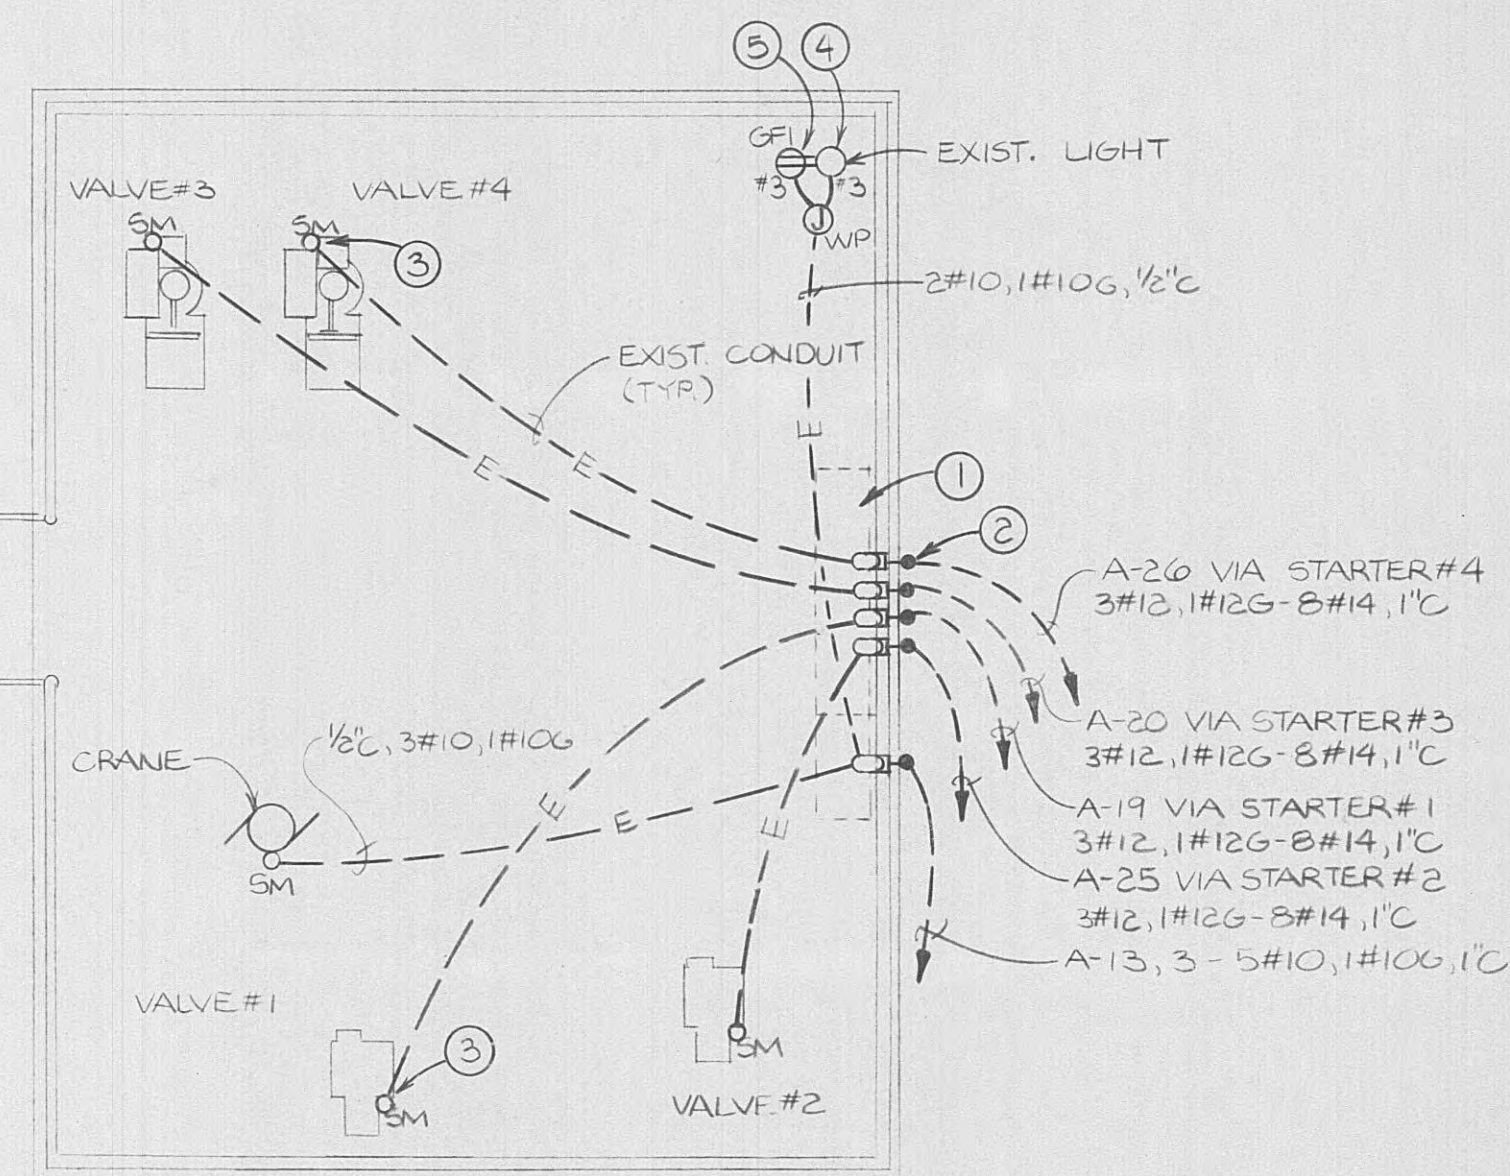 5 4
GFI
EXIST. LIGHT
#3 #3
J
WP
VALVE #3
VALVE #4
SM
SM
3
2#10, 1#10G, 1/2"C
EXIST. CONDUIT
(TYP.)
E
E
E
1
2
A-26 VIA STARTER #4
3#12, 1#12G-8#14, 1"C
A-20 VIA STARTER #3
3#12, 1#12G-8#14, 1"C
A-19 VIA STARTER #1
3#12, 1#12G-8#14, 1"C
A-25 VIA STARTER #2
3#12, 1#12G-8#14, 1"C
A-13, 3 - 5#10, 1#10G, 1"C
1/2"C, 3#10, 1#10G
CRANE
SM
E
E
E
VALVE #1
3
SM
SM
VALVE #2